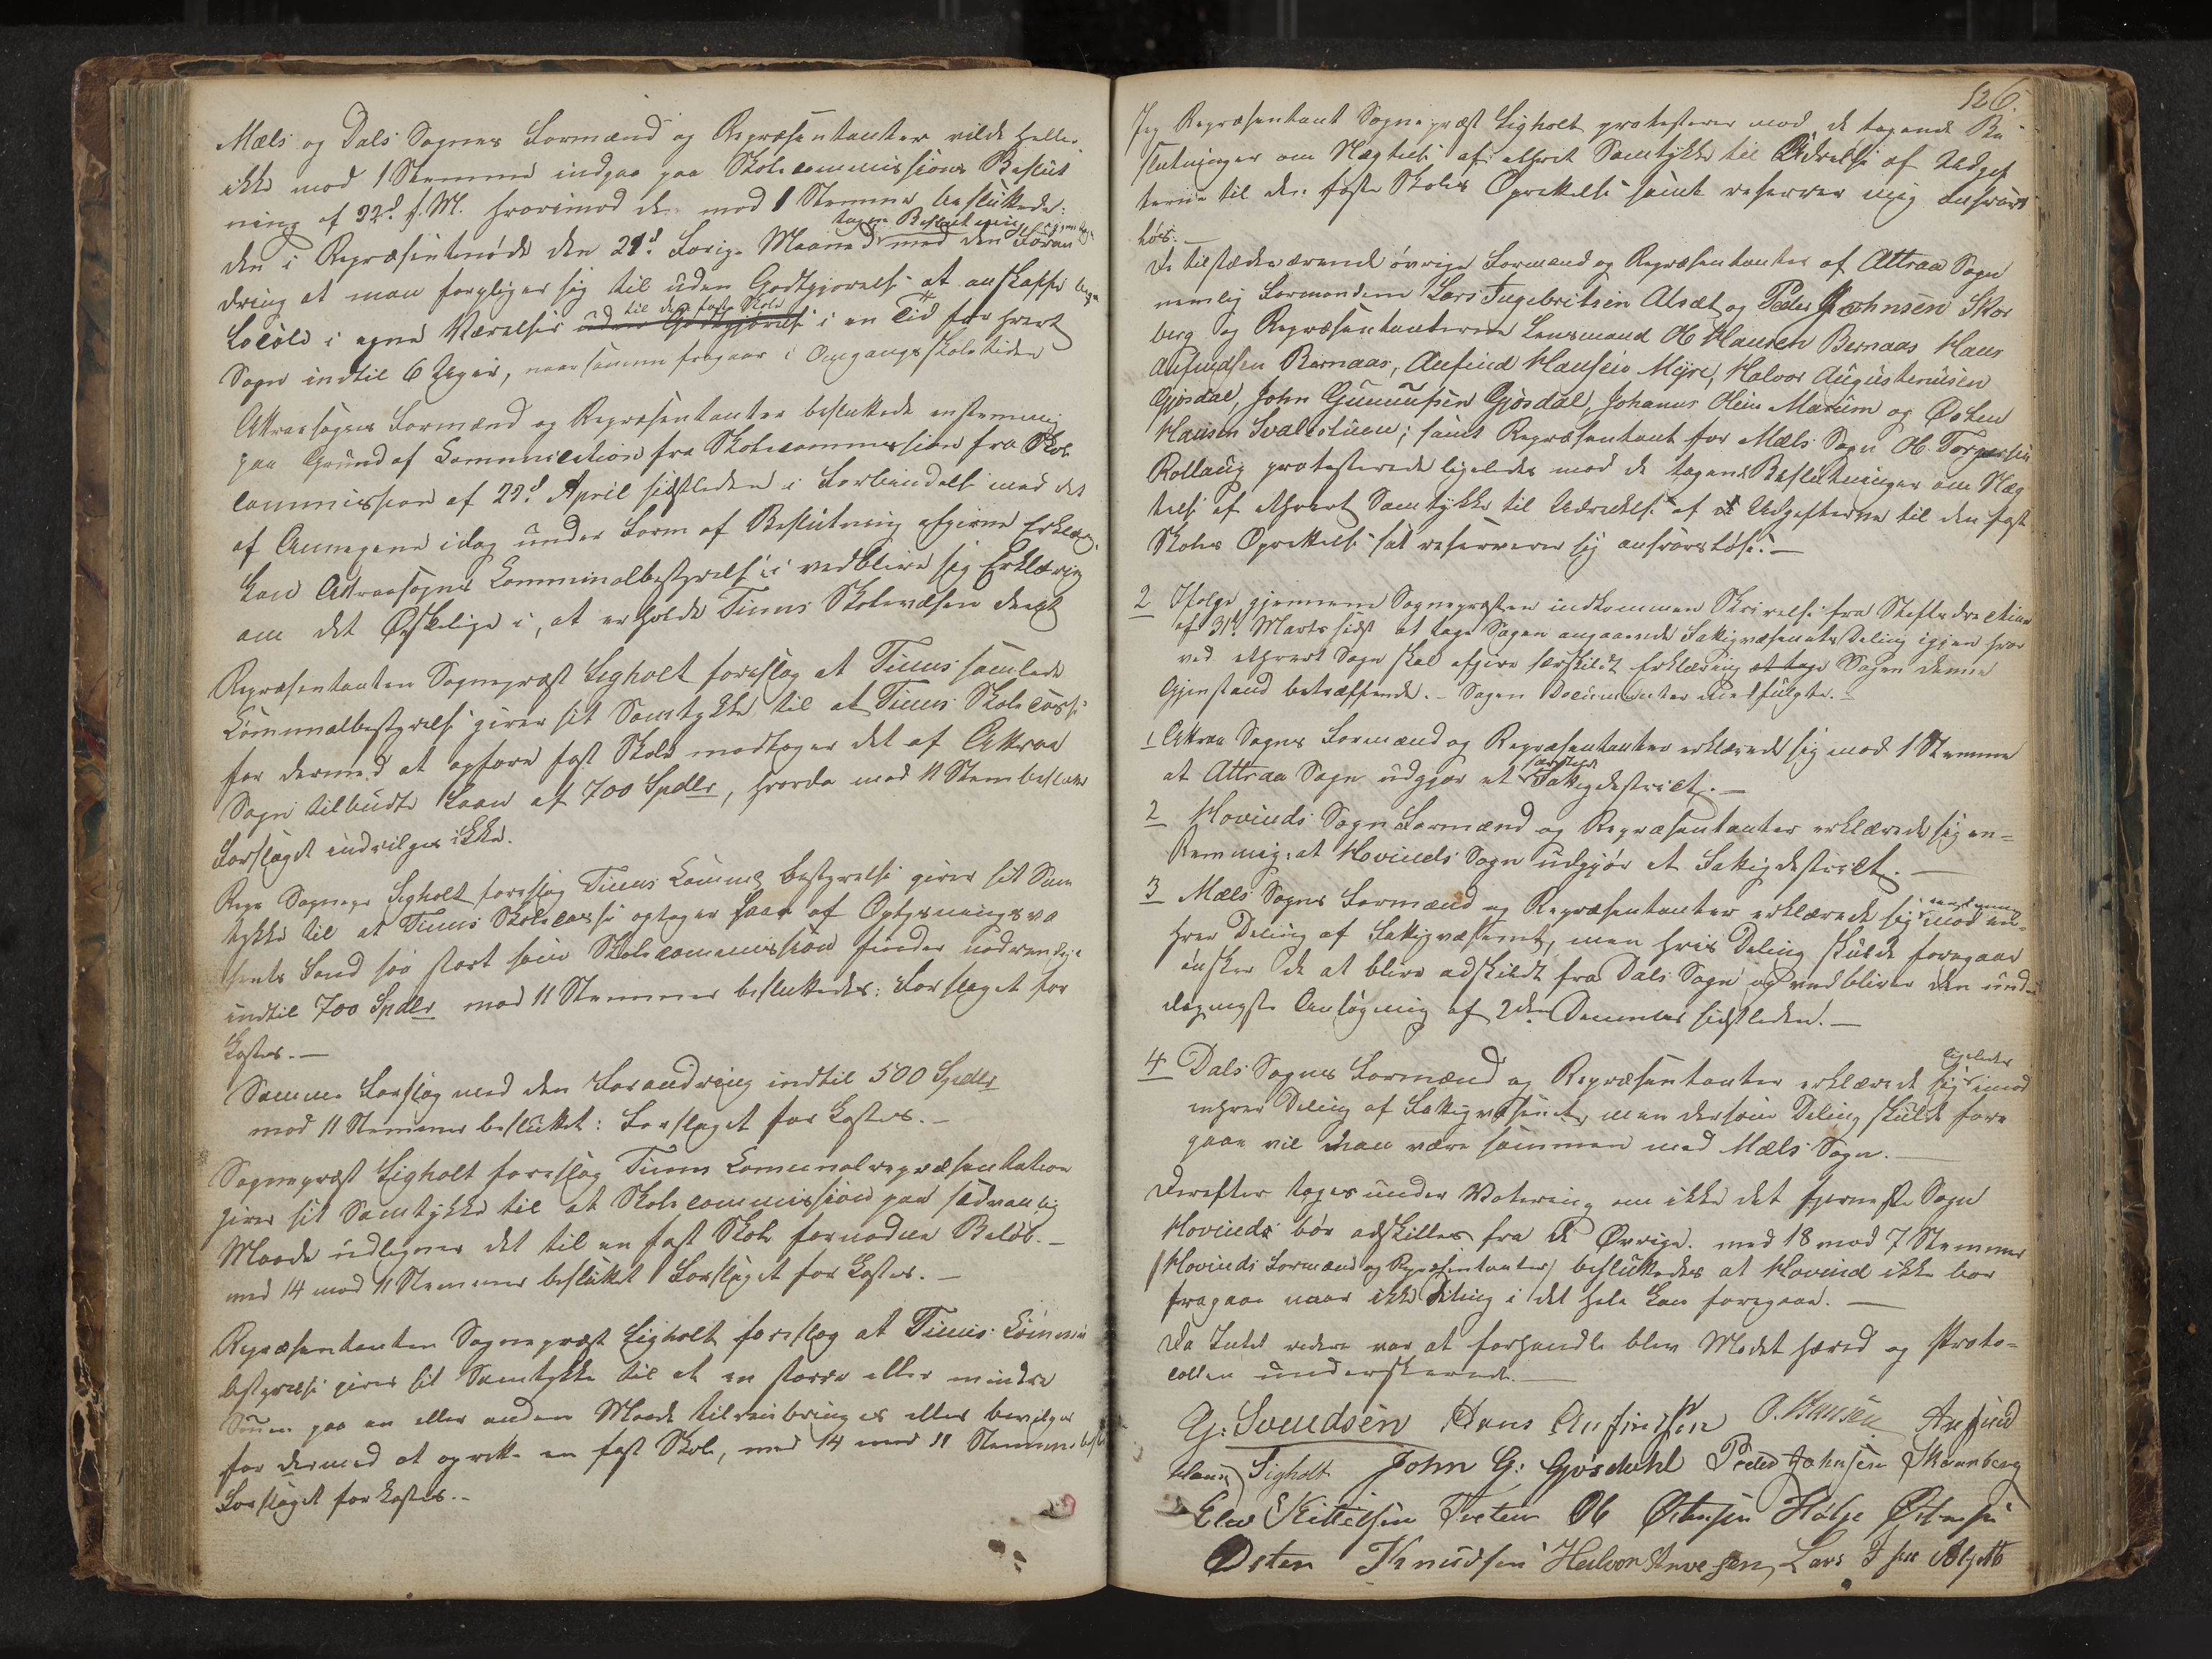 Mæls og Dals Sognes Formænd og Repræsentanter vilde heller
ikke mod 1 Stemme indgaa paa Skolecommissions Beslut
ning af 22d f. M. hvorimod de mod 1 Stemme besluttede:
tagen Beslutning
den i Repræsentmøde den 21d Forige Maaned med den Foran
dring at man forpligter sig til uden Godtgjorelse at anskaffe
til den faste Skole
Locale i egne Værelser uden Godtgjørelse i en Tid for hvert
Sogn indtil 6 Uger, naar samme fragaar i Omgangsskoletiden
Attraasognes Formænd og Repræsentanter besluttede enstemmig
paa Grund af Communication fra Skolecommission fra Skole
commission af 22d April sidstleden i Forbindelse med det
af Annexerne idag under Form af Beslutning afgivne Erklæring
kan Attraasognes Communalbestyrelse vedblive sig Erklæring
om det Ønskelige i, at erholde Tinns Skolevæsen deelt
Repræsentanten Sognepræst Sigholt foreslog at Tinns samlede
Communalbestyrelse giver sit Samtykke til at Tinns Skolecasse
for dermed at opføre fast Skole modtager det af Attraa
Sogn tilbudte Laan af 700 Spdlr, hvorda mod 11 Stem besluttes
Forslaget indvilges ikke.
Repr Sognepr Sigholt foreslog Tinns Commu bestyrelse giver sit Sam
tykke til at Tinns Skolecasse optager Laan af Oplysningsvæ
sents Fond saa stort som Skolecommission finder nødvendige
indtil 700 Spdlr mod 11 Stemmer besluttedes: Forslaget for
kastes. —
Samme Forslag med den Forandring indtil 500 Spdlr
mod 11 Stemmer besluttet: Forslaget forkastes. —
Sognepræst Sigholt foreslog Tinns Comunalrepræsentation
giver sit Samtykke til at Skolecommission paa sædvanlig
Maade udligner det til en fast Skole fornødne Beløb. —
med 14 mod 11 Stemmer besluttet Forslaget forkastes. —
Repræsentanten Sognepræst Sigholt foreslog at Tinns Commun
bestyrelse giver sit Samtykke til at en større eller mindre
Sum paa en eller anden Maade tilveiebringes eller bevilges
for dermed at oprette en fast Skole, med 14 mod 11 Stemmer
Forslaget forkastes. —
526.
Jeg Repræsentant Sognepræst Sigholt protesterer mod de tagende Be
slutninger om Nægtelse af ethvert Samtykke til Udredelse af Udgif
terne til den faste Skoles Oprettelse samt reserverer mig ansvars
løs. —
De tilstædeværende øvrige Formænd og Repræsentanter af Attraa Sogn
nemlig Formændene Lars Ingebritsen Alsæt og Peder Johnsen Skor
berg og Repræsentanterne Lensmand Ol Hansen Bernaas Hans
Anfindsen Bernaas, Anfind Hansen Myre, Halvor Augustenusen
Gjøsdal, John Gunnufsen Gjøsdal, Johannes Olsen Mærum og Østen
Hansen Svalestuen; samt Repræsentant for Mæls Sogn Ol Torgersen
Rollaug protesterede ligeledes mod de tagende Beslutninger om Næg
telse af ethvert Samtykke til Udredelse af Udgifterne til den faste
Skoles Oprettelse samt reserverer sig ansvarsløse. —
2 Ifølge gjennem Sognepræsten indkommen Skrivelse fra Stiftsdirectionen
af 31d Marts sidst at tage Sagen angaaende Fattigvæsenets Deling igjen hvor
ved ethvert Sogn skal afgive særskildt Erklæring at tage Sagen denne
Gjenstand betræffende. — Sagens Documenter medfulgte. —
1 Attraa Sognes Formænd og Repræsentanter erklærede sig mod 1 Stemme
særskilt
at Attraa Sogn udgjør et Fattigdistrict. —
2 Hovinds Sogn Formænd og Repræsentanter erklærede sig en=
stemmig: at Hovinds Sogn udgjør et Fattigdistrict. —
3 Mæls Sognes Formænd og Repræsentanter erklærede sig mod en=
hver Deling af Fattigvæsenet, men hvis Deling skulde foregaae
ønsker de at blive adskildt fra Dals Sogn og vedbliver den und=
dagnigste Ansøgning af 2den December sidstleden. —
ligeledes
4 Dals Sognes Formænd og Repræsentanter erklærede sig imod
enhver Deling af Fattigvæsenet, men dersom Deling skulde fore
gaae vil man være sammen med Mæls Sogn. —
Derefter toges under Votering om ikke det fjerneste Sogn
Hovinds bør adskilles fra de Øvrige. med 18 mod 7 Stemmer
(Hovinds Formænd og Repræsentanter) besluttedes at Hovind ikke bør
fragaae naar ikke Deling i det hele kan foregaae. —
Da Intet videre var at forhandle blev Mødet hævet og Proto=
collen underskrevet. —
G. Svendsen Hans Anfindsen O. Hansen Anfind
Hans Sigholt John G: Gjøsdahl Peder Johnsen Skaanberg
Elev Kittilsen Tveten Ol Østensen Hølje Østensen
Østen Knudsen Halvor Anve sen, Lars I sen Alsett